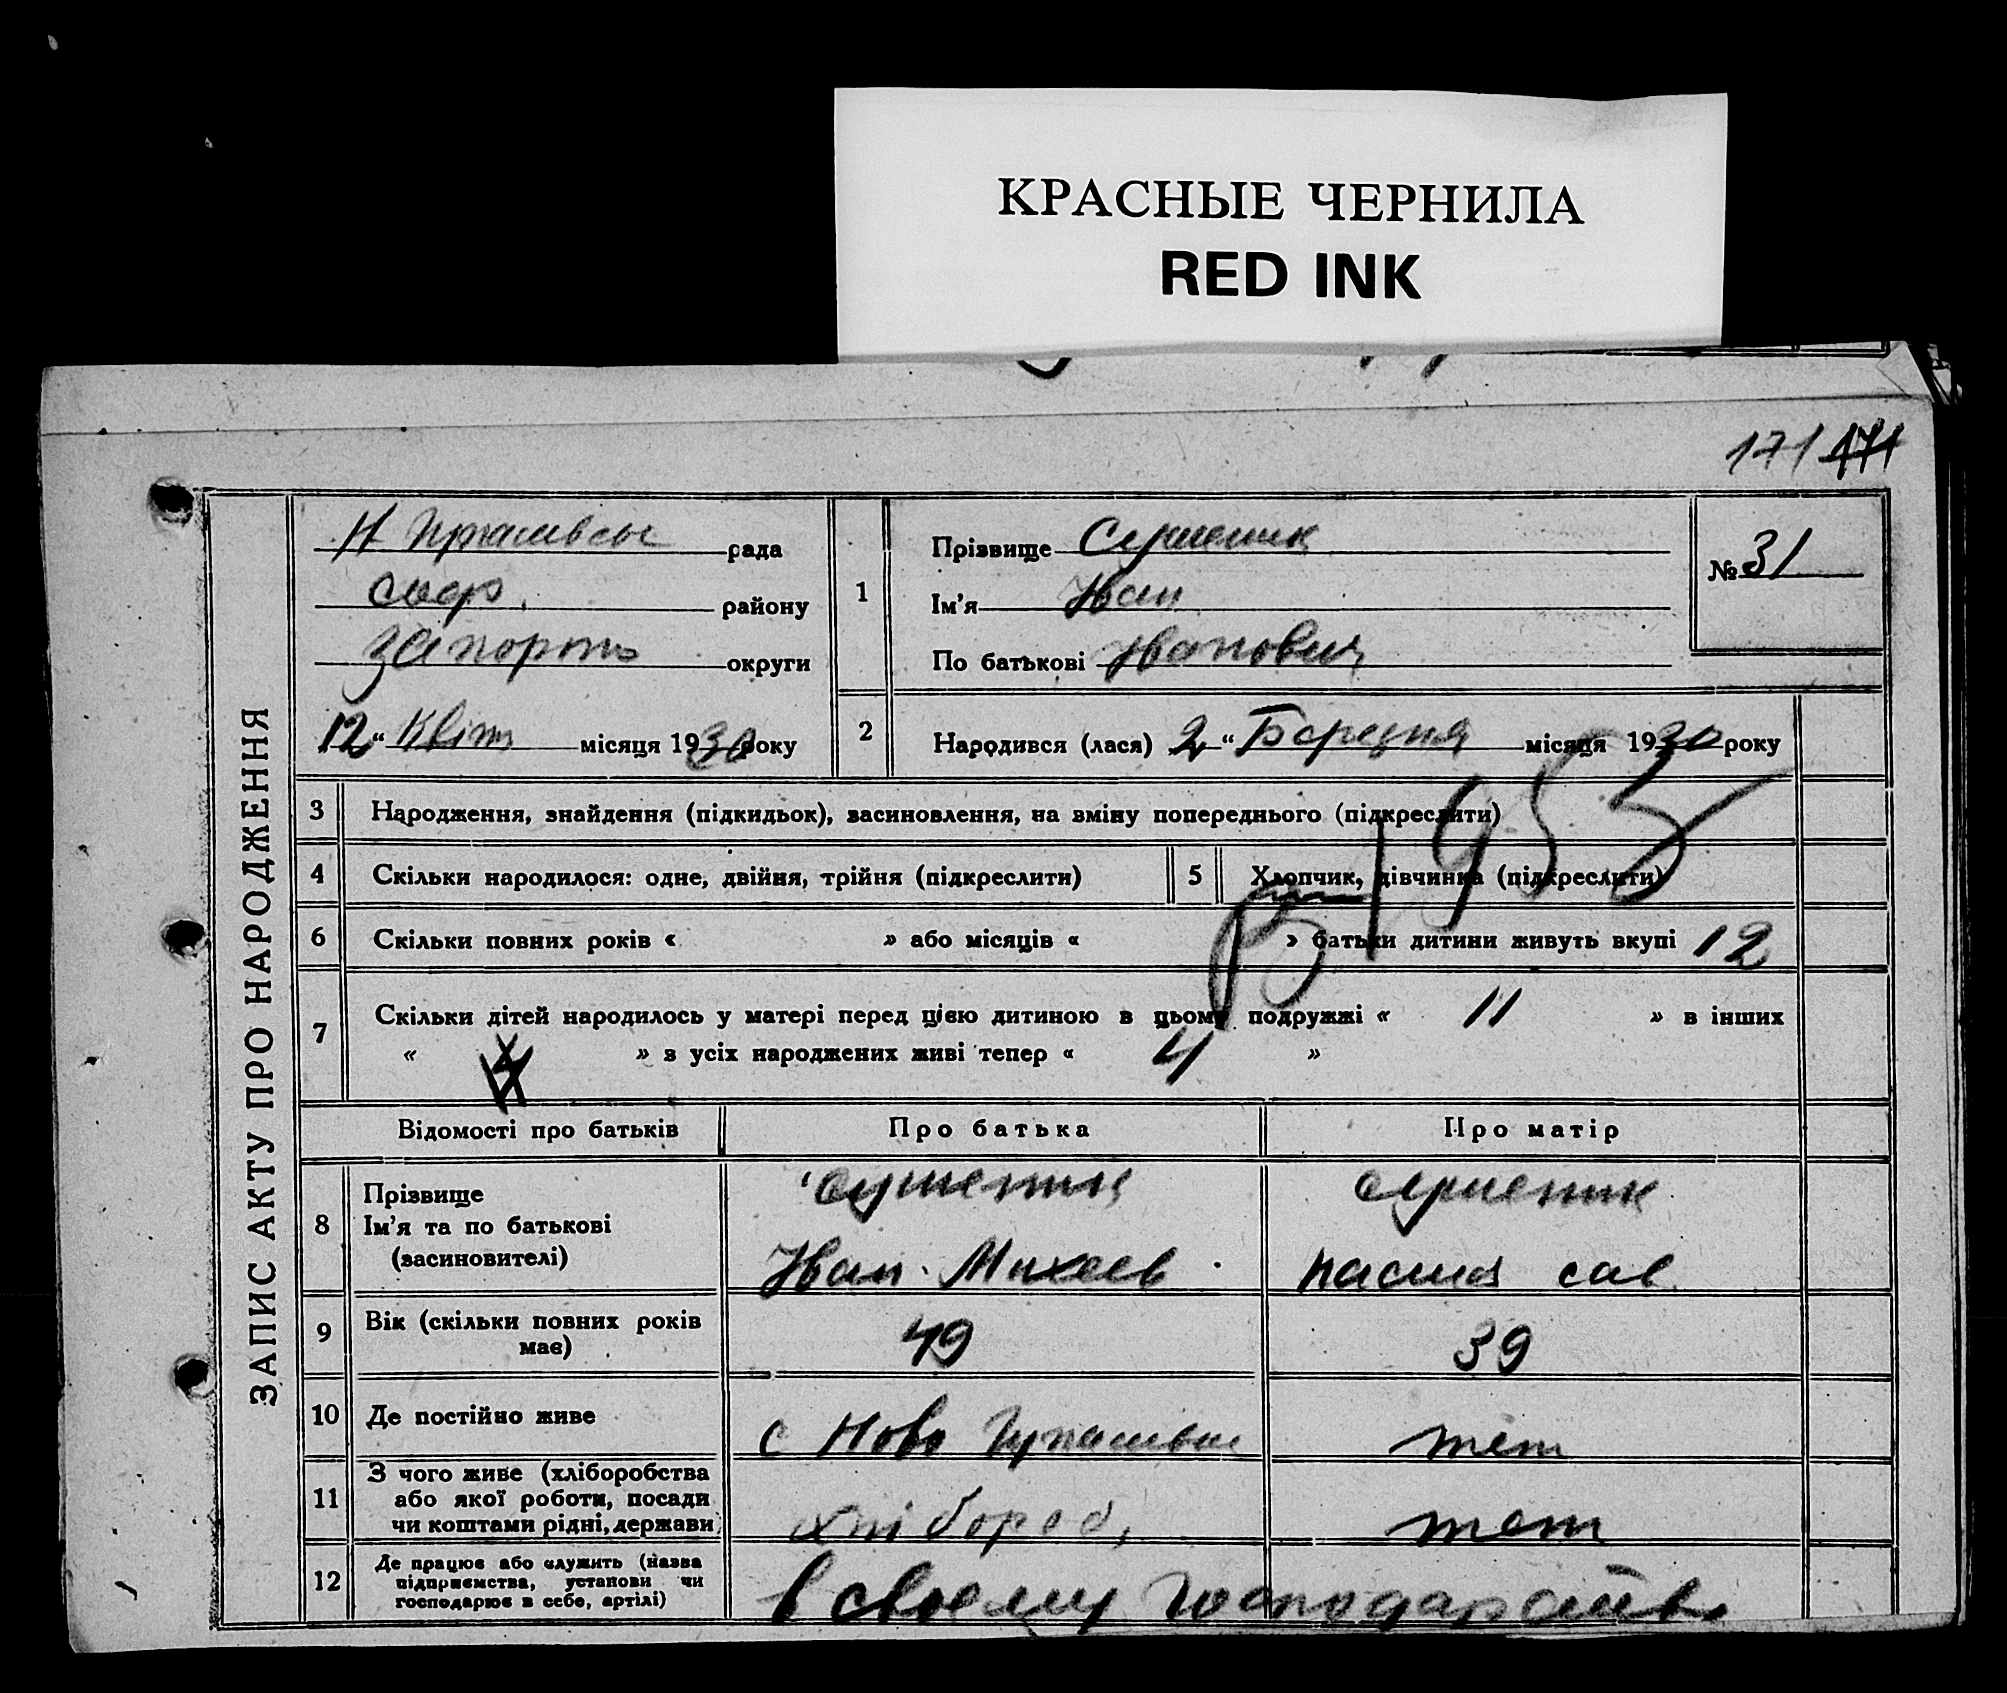 КРАСНЫЕ ЧЕРНИЛА
RED INK
171 171
ЗАПИС АКТУ ПРО НАРОДЖЕННЯ
рада
району
округи
12 “ Квітн місяця 1930 року
1
Прізвище
Ім'я Иван
По батькові Иванович
№ 31
2
Народився (лася) 2 “ Березня місяця 1930 року
3 Народження, знайдення (підкидьок), засиновлення, на зміну попереднього (підкреслити)
4 Скільки народилося: одне, двійня, трійня (підкреслити)
5 Хлопчик, дівчинка (підкреслити)
1955
6 Скільки повних років « » або місяців « » батьки дитини живуть вкупі 12
7 Скільки дітей народилось у матері перед цією дитиною в цьому подружжі « 11 » в інших
« » з усіх народжених живі тепер « 4 »
Відомості про батьків
Про батька
Про матір
8 Прізвище
Ім'я та по батькові
(засиновителі)
Иван Михеев
9 Вік (скільки повних років
має)
49
39
10 Де постійно живе
с Ново
теж
11 З чого живе (хліборобства
або якої роботи, посади
чи коштами рідні, держави)
хлібороб,
теж
12 Де працює або служить (назва
підприємства, установи чи
господарює в себе, артілі)
в своему господарстві